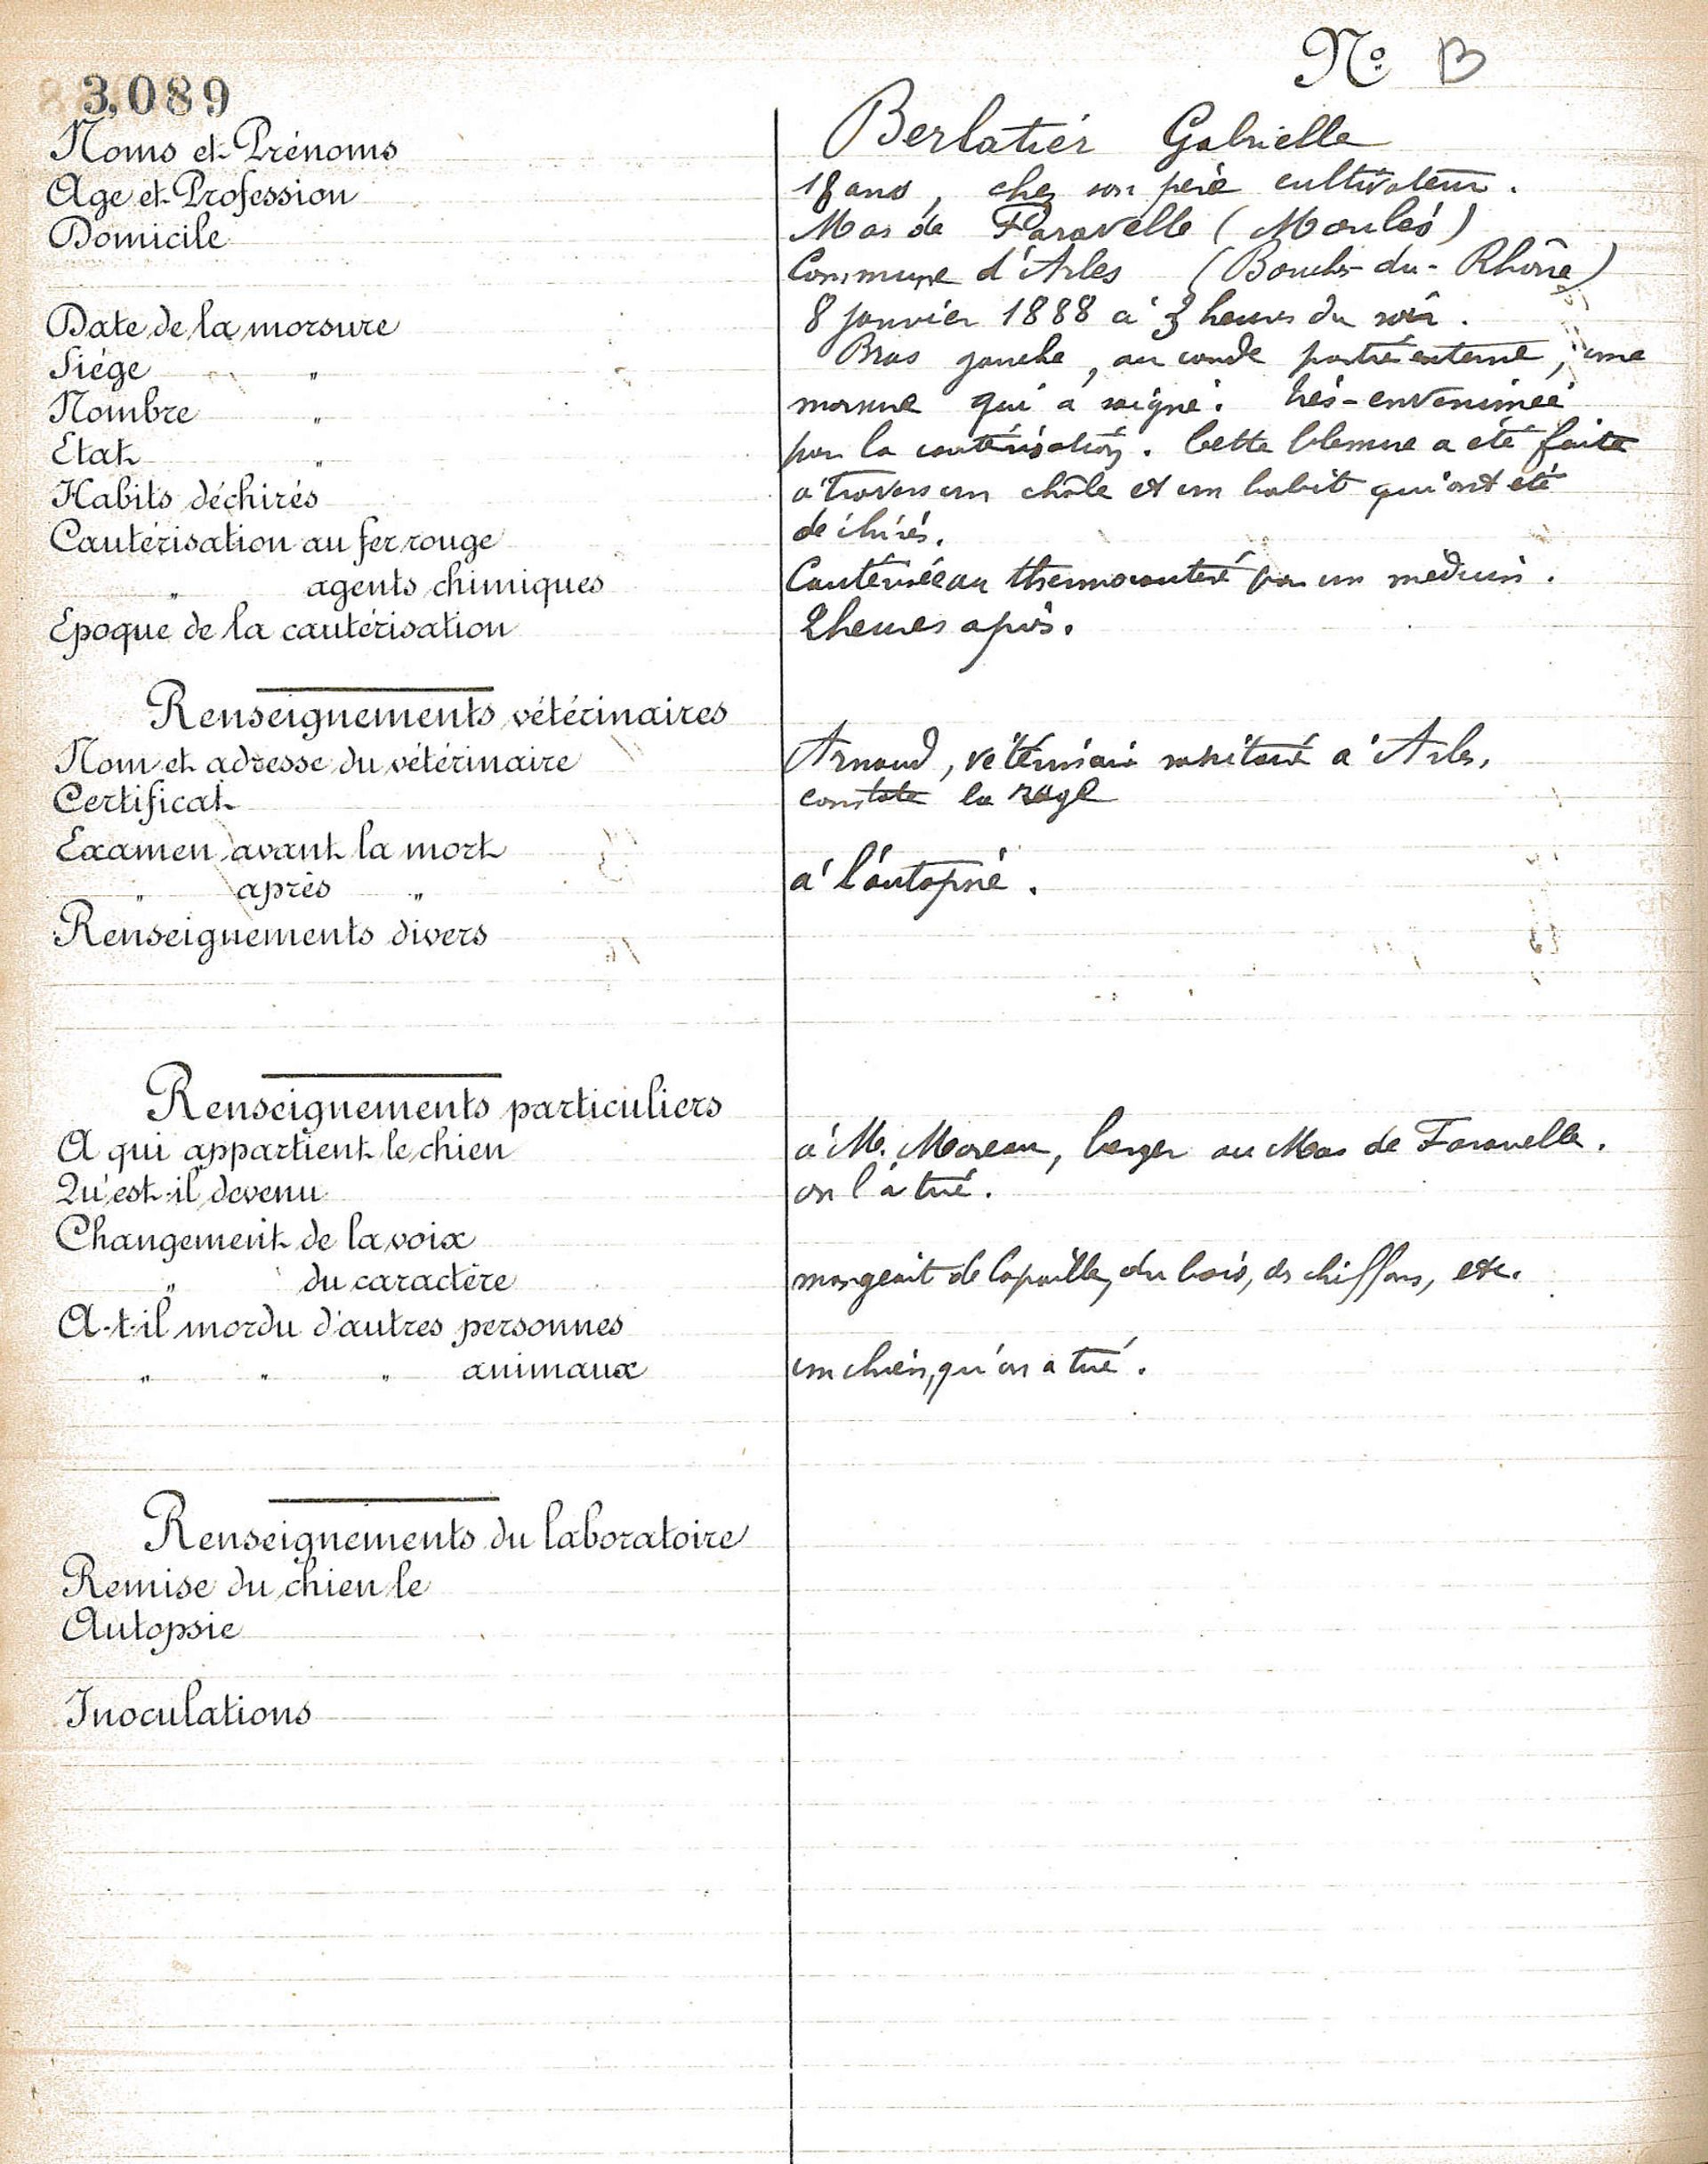 3,089
Nº B
Noms et Prénoms Berlatier Gabrielle
Age et Profession 18 ans, chez son père cultivateur.
Domicile Mas de Faravelle (Moulès)
Commune d'Arles (Bouches-du-Rhône)
Date de la morsure 8 janvier 1888 à 3 heures du soir.
Siége " Bras gauche, au coude partie externe, une
Nombre " morsure qui a saigné. très-envenimée
Etat " par la cautérisation. Cette blessure a été faite
Habits déchirés à travers un châle et un habit qui ont été
Cautérisation au fer rouge déchirés.
" agents chimiques Cautérisée au thermocautère par un médecin.
Epoque de la cautérisation 2 heures après.
Renseignements vétérinaires
Nom et adresse du vétérinaire Arnaud, vétérinaire sanitaire à Arles,
Certificat constate la rage
Examen avant la mort
" après " à l'autopsie.
Renseignements divers
Renseignements particuliers
A qui appartient le chien à M. Moreau, berger au Mas de Faravelle.
Qu'est-il devenu on l'a tué.
Changement de la voix
" du caractère mangeait de la paille, du bois, des chiffons, etc.
A-t-il mordu d'autres personnes
" " " animaux un chien, qu'on a tué.
Renseignements du laboratoire
Remise du chien le
Autopsie
Inoculations